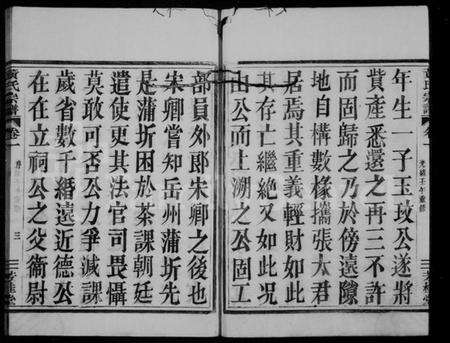 年生一子玉玟公遂將
貲產悉還之再三不許
而固歸之乃於傍遠隙
地自構數椽攜張太君
居焉其重義輕財如此
其存亡繼絕又如此况
由公而上溯之公固工
部員外郎宋卿之後也
宋卿嘗知岳州蒲圻先
是蒲圻困於茶課朝廷
遣使更其法官司畏懾
莫敢可否公力爭減課
歲省數千緡遠近德公
在在立祠公之父衞尉
黃氏宗譜
卷一
三
光緒壬午重修